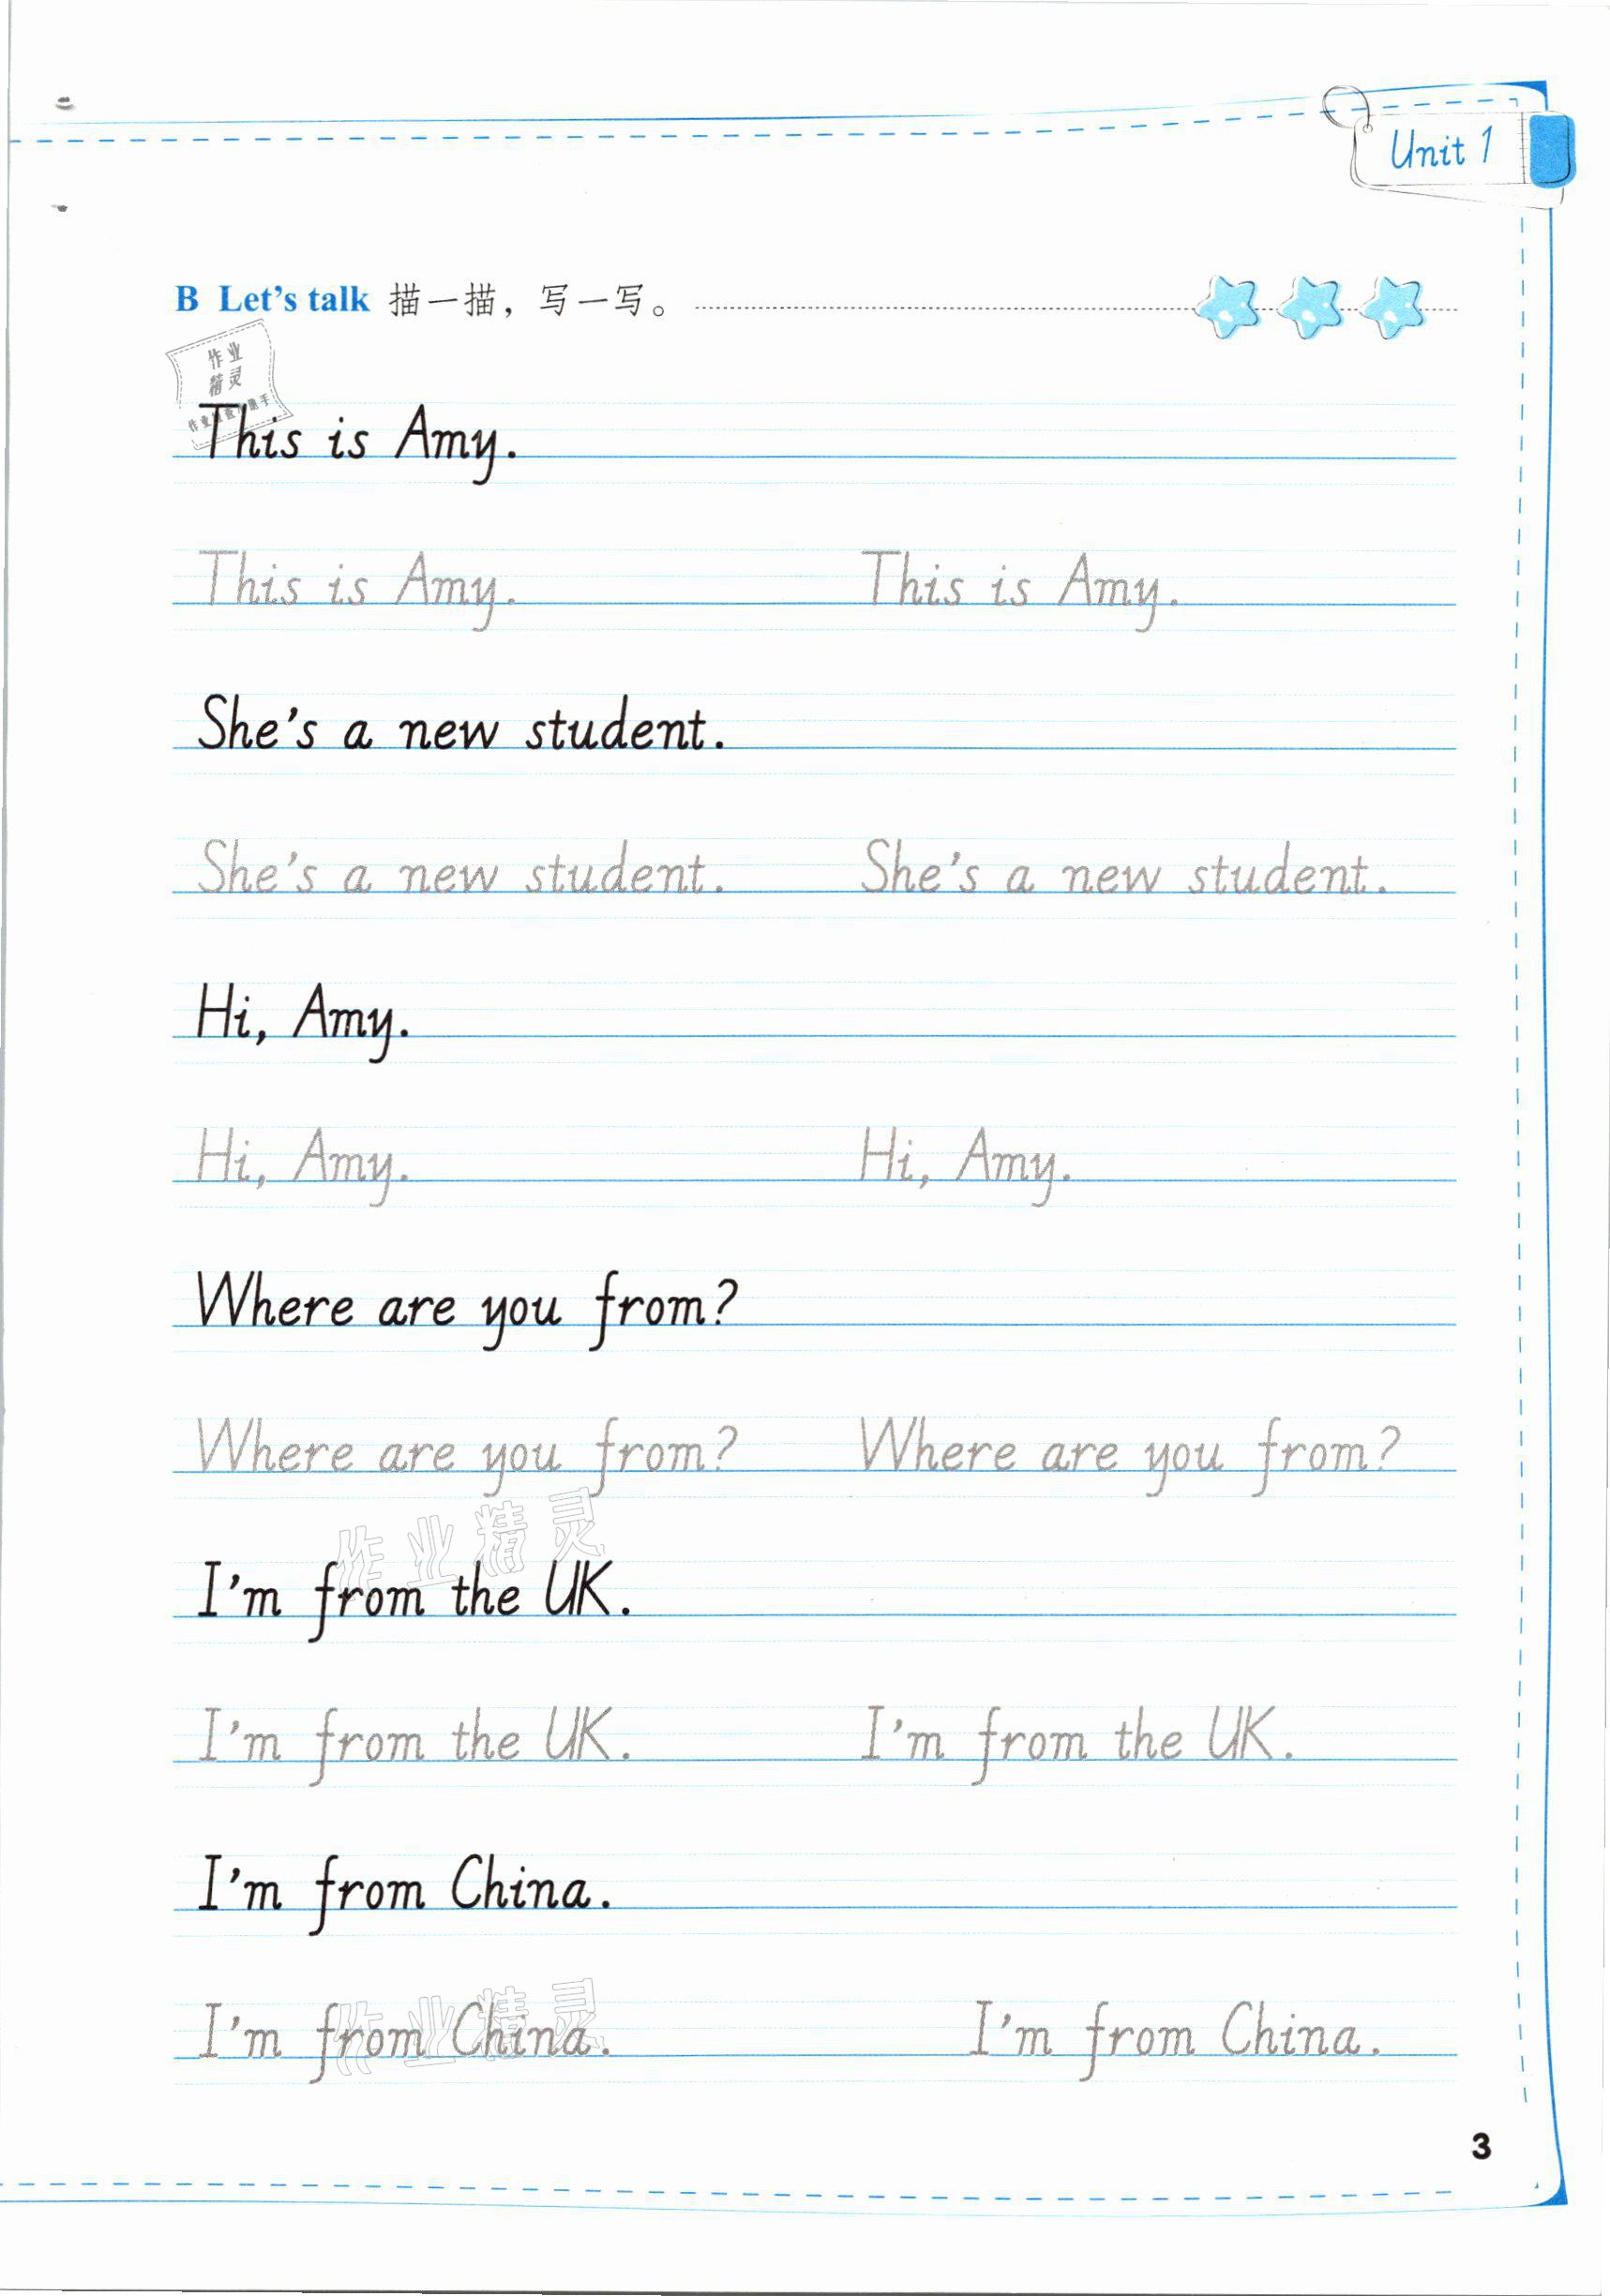 Unit 1
B Let's talk 描一描，写一写。
作业
精灵
This is Amy.
This is Amy. This is Amy.
She's a new student.
She's a new student. She's a new student.
Hi, Amy.
Hi, Amy. Hi, Amy.
Where are you from?
Where are you from? Where are you from?
作业精灵
I'm from the UK.
I'm from the UK. I'm from the UK.
I'm from China.
作业精灵
I'm from China. I'm from China.
3